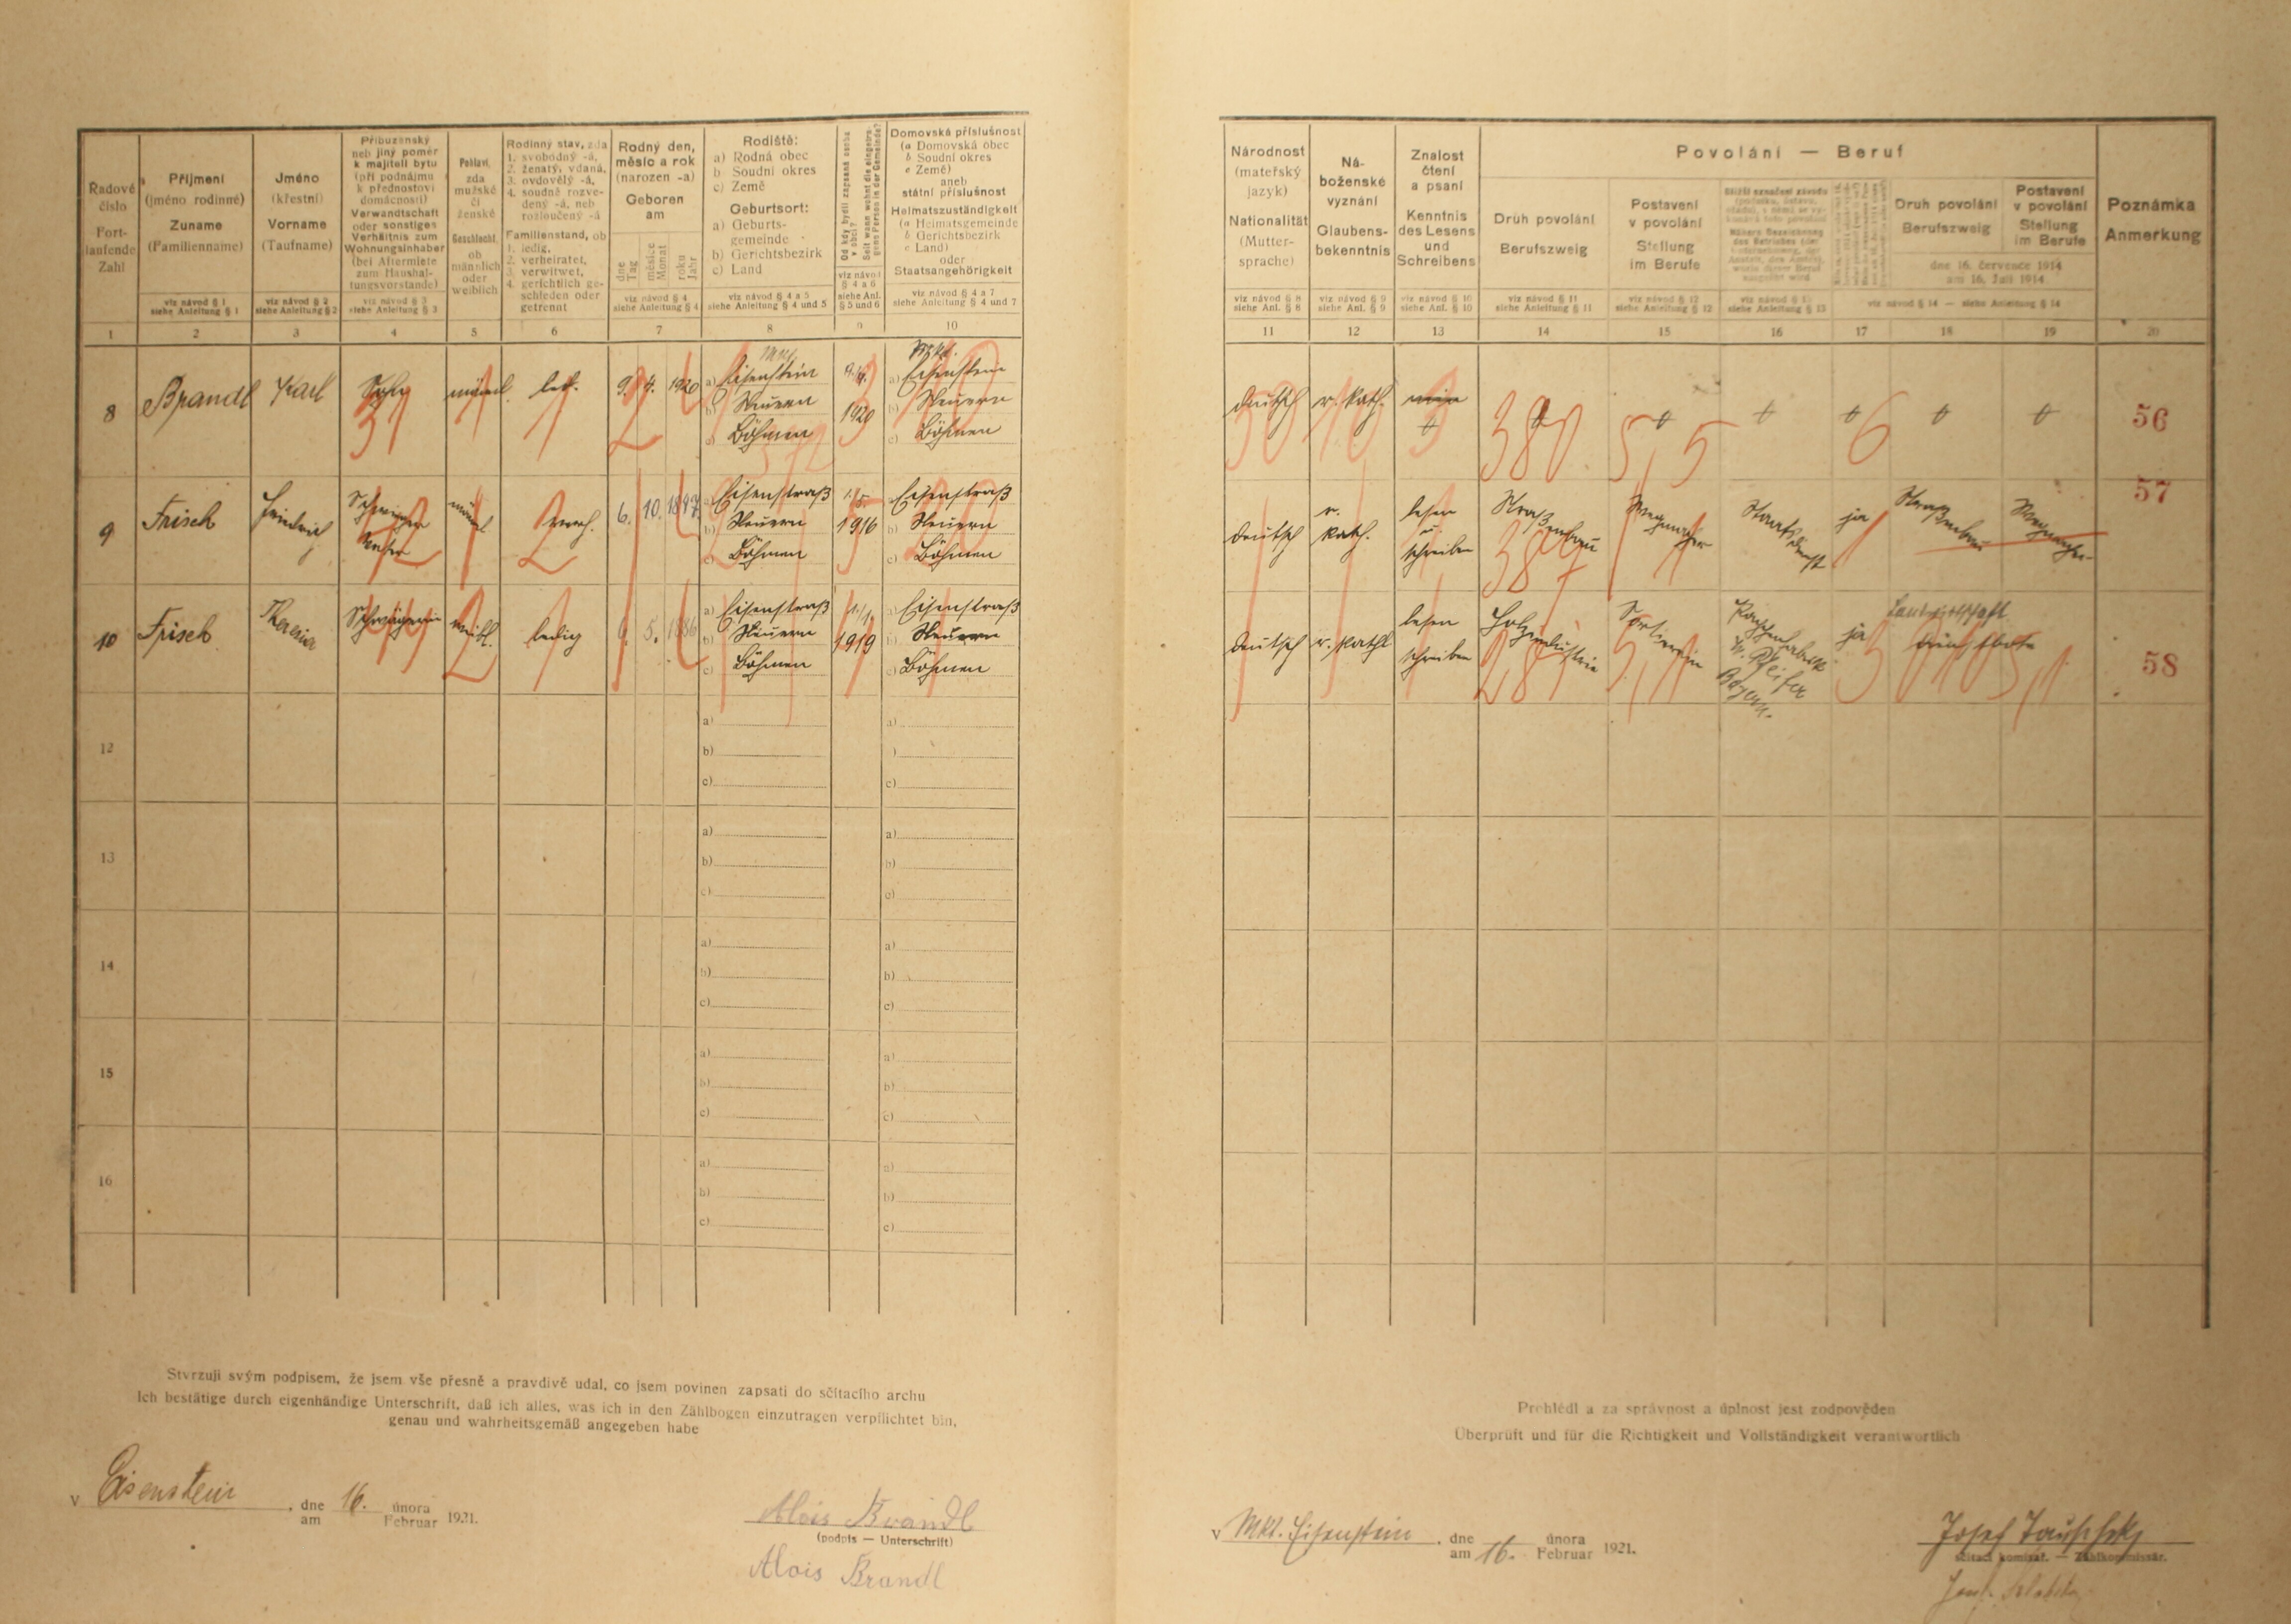 Řadové číslo
Fortlaufende Zahl
1
Příjmení
(jméno rodinné)
Zuname
(Familienname)
viz návod § 1
siehe Anleitung § 1
2
Jméno
(křestní)
Vorname
(Taufname)
viz návod § 2
siehe Anleitung § 2
3
Příbuzenský
neb jiný poměr
k majiteli bytu
(při podnájmu
k přednostovi
domácnosti)
Verwandtschaft
oder sonstiges
Verhältnis zum
Wohnungsinhaber
(bei Aftermiete
zum Haushal-
tungsvorstande)
viz návod § 3
siehe Anleitung § 3
4
Pohlaví,
zda
mužské
či
ženské
Geschlecht,
ob
männlich
oder
weiblich
5
Rodinný stav, zda
1. svobodný -á,
2. ženatý, vdaná,
3. ovdovělý -á,
4. soudně rozve-
dený -á, neb
rozloučený -á
Familienstand, ob
1. ledig,
2. verheiratet,
3. verwitwet,
4. gerichtlich ge-
schieden oder
getrennt
6
Rodný den,
měsíc a rok
(narozen -a)
Geboren
am
dne Tag
měsíce Monat
roku Jahr
viz návod § 4
siehe Anleitung § 4
7
Rodiště:
a) Rodná obec
b) Soudní okres
c) Země
Geburtsort:
a) Geburts-
gemeinde
b) Gerichtsbezirk
c) Land
viz návod § 4 a 5
siehe Anleitung § 4 und 5
8
Od kdy bydlí zapsaná osoba
v obci?
Seit wann wohnt die eingetra-
gene Person in der Gemeinde?
viz návod
§ 4 a 6
siehe Anl.
§ 5 und 6
9
Domovská příslušnost
(a Domovská obec
b Soudní okres
c Země)
aneb
státní příslušnost
Heimatszuständigkeit
(a Heimatsgemeinde
b Gerichtsbezirk
c Land)
oder
Staatsangehörigkeit
viz návod § 4 a 7
siehe Anleitung § 4 und 7
10
Národnost
(mateřský
jazyk)
Nationalität
(Mutter-
sprache)
viz návod § 8
siehe Anl. § 8
11
Ná-
boženské
vyznání
Glaubens-
bekenntnis
viz návod § 9
siehe Anl. § 9
12
Znalost
čtení
a psaní
Kenntnis
des Lesens
und
Schreibens
viz návod § 10
siehe Anl. § 10
13
Povolání — Beruf
Druh povolání
Berufszweig
viz návod § 11
siehe Anleitung § 11
14
Postavení
v povolání
Stellung
im Berufe
viz návod § 12
siehe Anleitung § 12
15
viz návod § 13
siehe Anleitung § 13
16
17
Druh povolání
Berufszweig
Postavení
v povolání
Stellung
im Berufe
dne 16. července 1914
am 16. Juli 1914
viz návod § 14 — siehe Anleitung § 14
18
19
Poznámka
Anmerkung
20
8 Brandl Karl Sohn männl. led. 9. 4. 1920
Mkt.
a) Eisenstein
b) Neuern
c) Böhmen
9./4.
1920
Mkt.
a) Eisenstein
b) Neuern
c) Böhmen
deutsch r. kath. 56
31 1 1 2
380 5,5 6
9 Frisch Friedrich Schwieger
vater
männl verh. 6. 10. 1847
a) Eisenstraß
b) Neuern
c) Böhmen
1./5.
1916
a) Eisenstraß
b) Neuern
c) Böhmen
deutsch r.
kath.
lesen
u.
schreiben
Straßenbau Wegmacher Staatsdienst ja Straßenbau Wegmacher 57
10 Frisch Theresia Schwägerin weibl. ledig 9. 5. 1886
a) Eisenstraß
b) Neuern
c) Böhmen
1./1.
1919
a) Eisenstraß
b) Neuern
c) Böhmen
deutsch r. kathl
lesen
schreiben
Holzindustrie Sortiererin
ja
Landwirtschaft
58
a)
b)
c)
a)
b)
c)
12
a)
b)
c)
a)
b)
c)
13
a)
b)
c)
a)
b)
c)
14
a)
b)
c)
a)
b)
c)
15
a)
b)
c)
a)
b)
c)
16
Stvrzuji svým podpisem, že jsem vše přesně a pravdivě udal, co jsem povinen zapsati do sčítacího archu
Ich bestätige durch eigenhändige Unterschrift, daß ich alles, was ich in den Zählbogen einzutragen verpflichtet bin,
genau und wahrheitsgemäß angegeben habe
v Eisenstein, dne am 16. února Februar 1921.
Alois Brandl
(podpis — Unterschrift)
Alois Brandl
Prohlédl a za správnost a úplnost jest zodpověden
Überprüft und für die Richtigkeit und Vollständigkeit verantwortlich
v Mkt. Eisenstein, dne am 16. února Februar 1921.
Josef
sčítací komisař. — Zählkommissär.